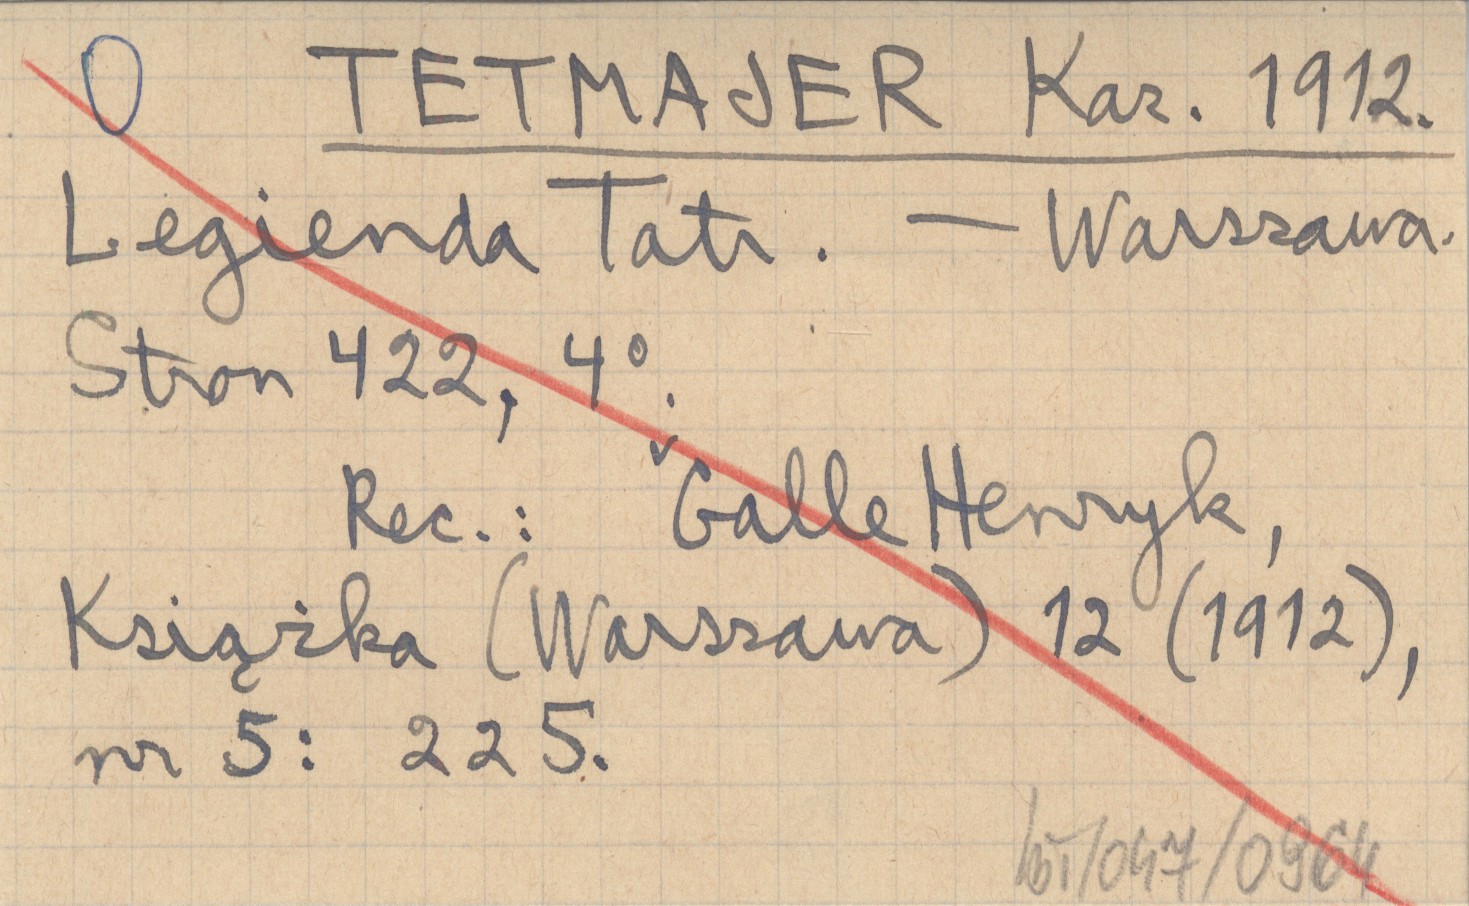 0 TETMAJER Kaz. 1912.
Legienda Tatr. — Warszawa.
Stron 422, 4°.
Rec.: Galle Henryk,
Książka (Warszawa) 12 (1912),
nr 5: 225.
/047/0964